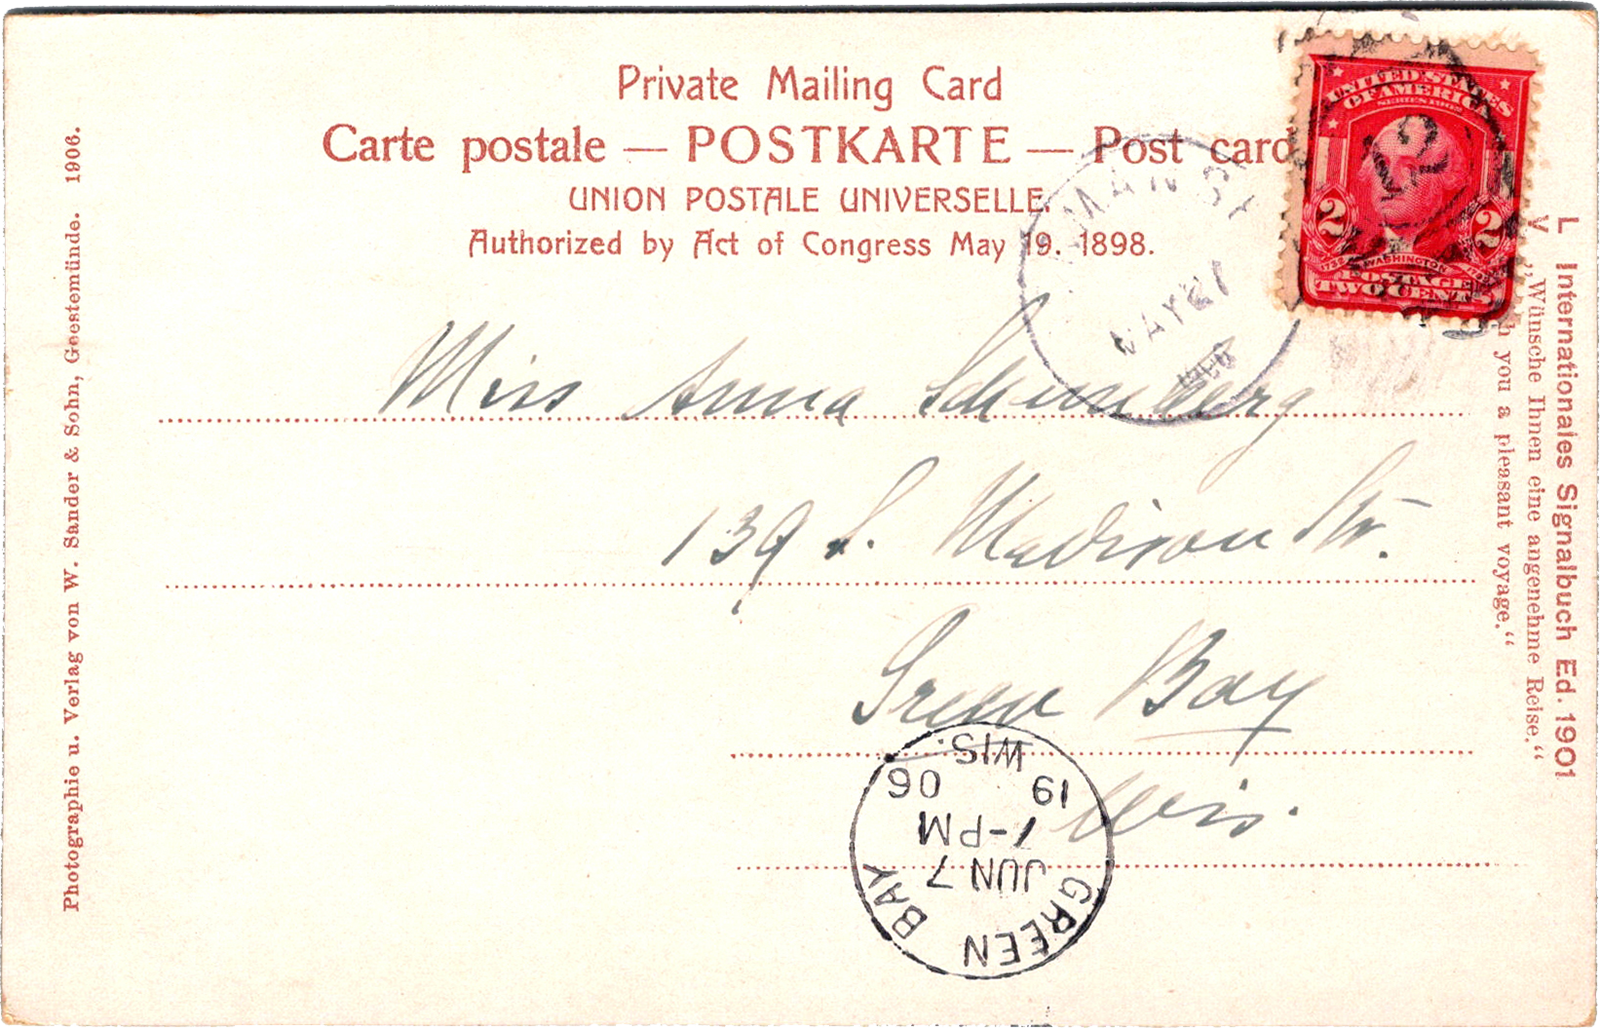 Private Mailing Card
Carte postale — POSTKARTE — Post card
UNION POSTALE UNIVERSELLE.
Authorized by Act of Congress May 19. 1898.
UNITED STATES
OF AMERICA
SERIES 1902
2 2
WASHINGTON
POSTAGE
TWO CENTS
MAY 27
Miss Anna Schumberg
139 S. Madison Str.
Green Bay
Wis.
GREEN BAY
JUN 7
7-PM
19 06
WIS.
Photographie u. Verlag von W. Sander & Sohn, Geestemünde. 1906.
L Internationales Signalbuch Ed. 1901
V „Wünsche Ihnen eine angenehme Reise.“
you a pleasant voyage.“